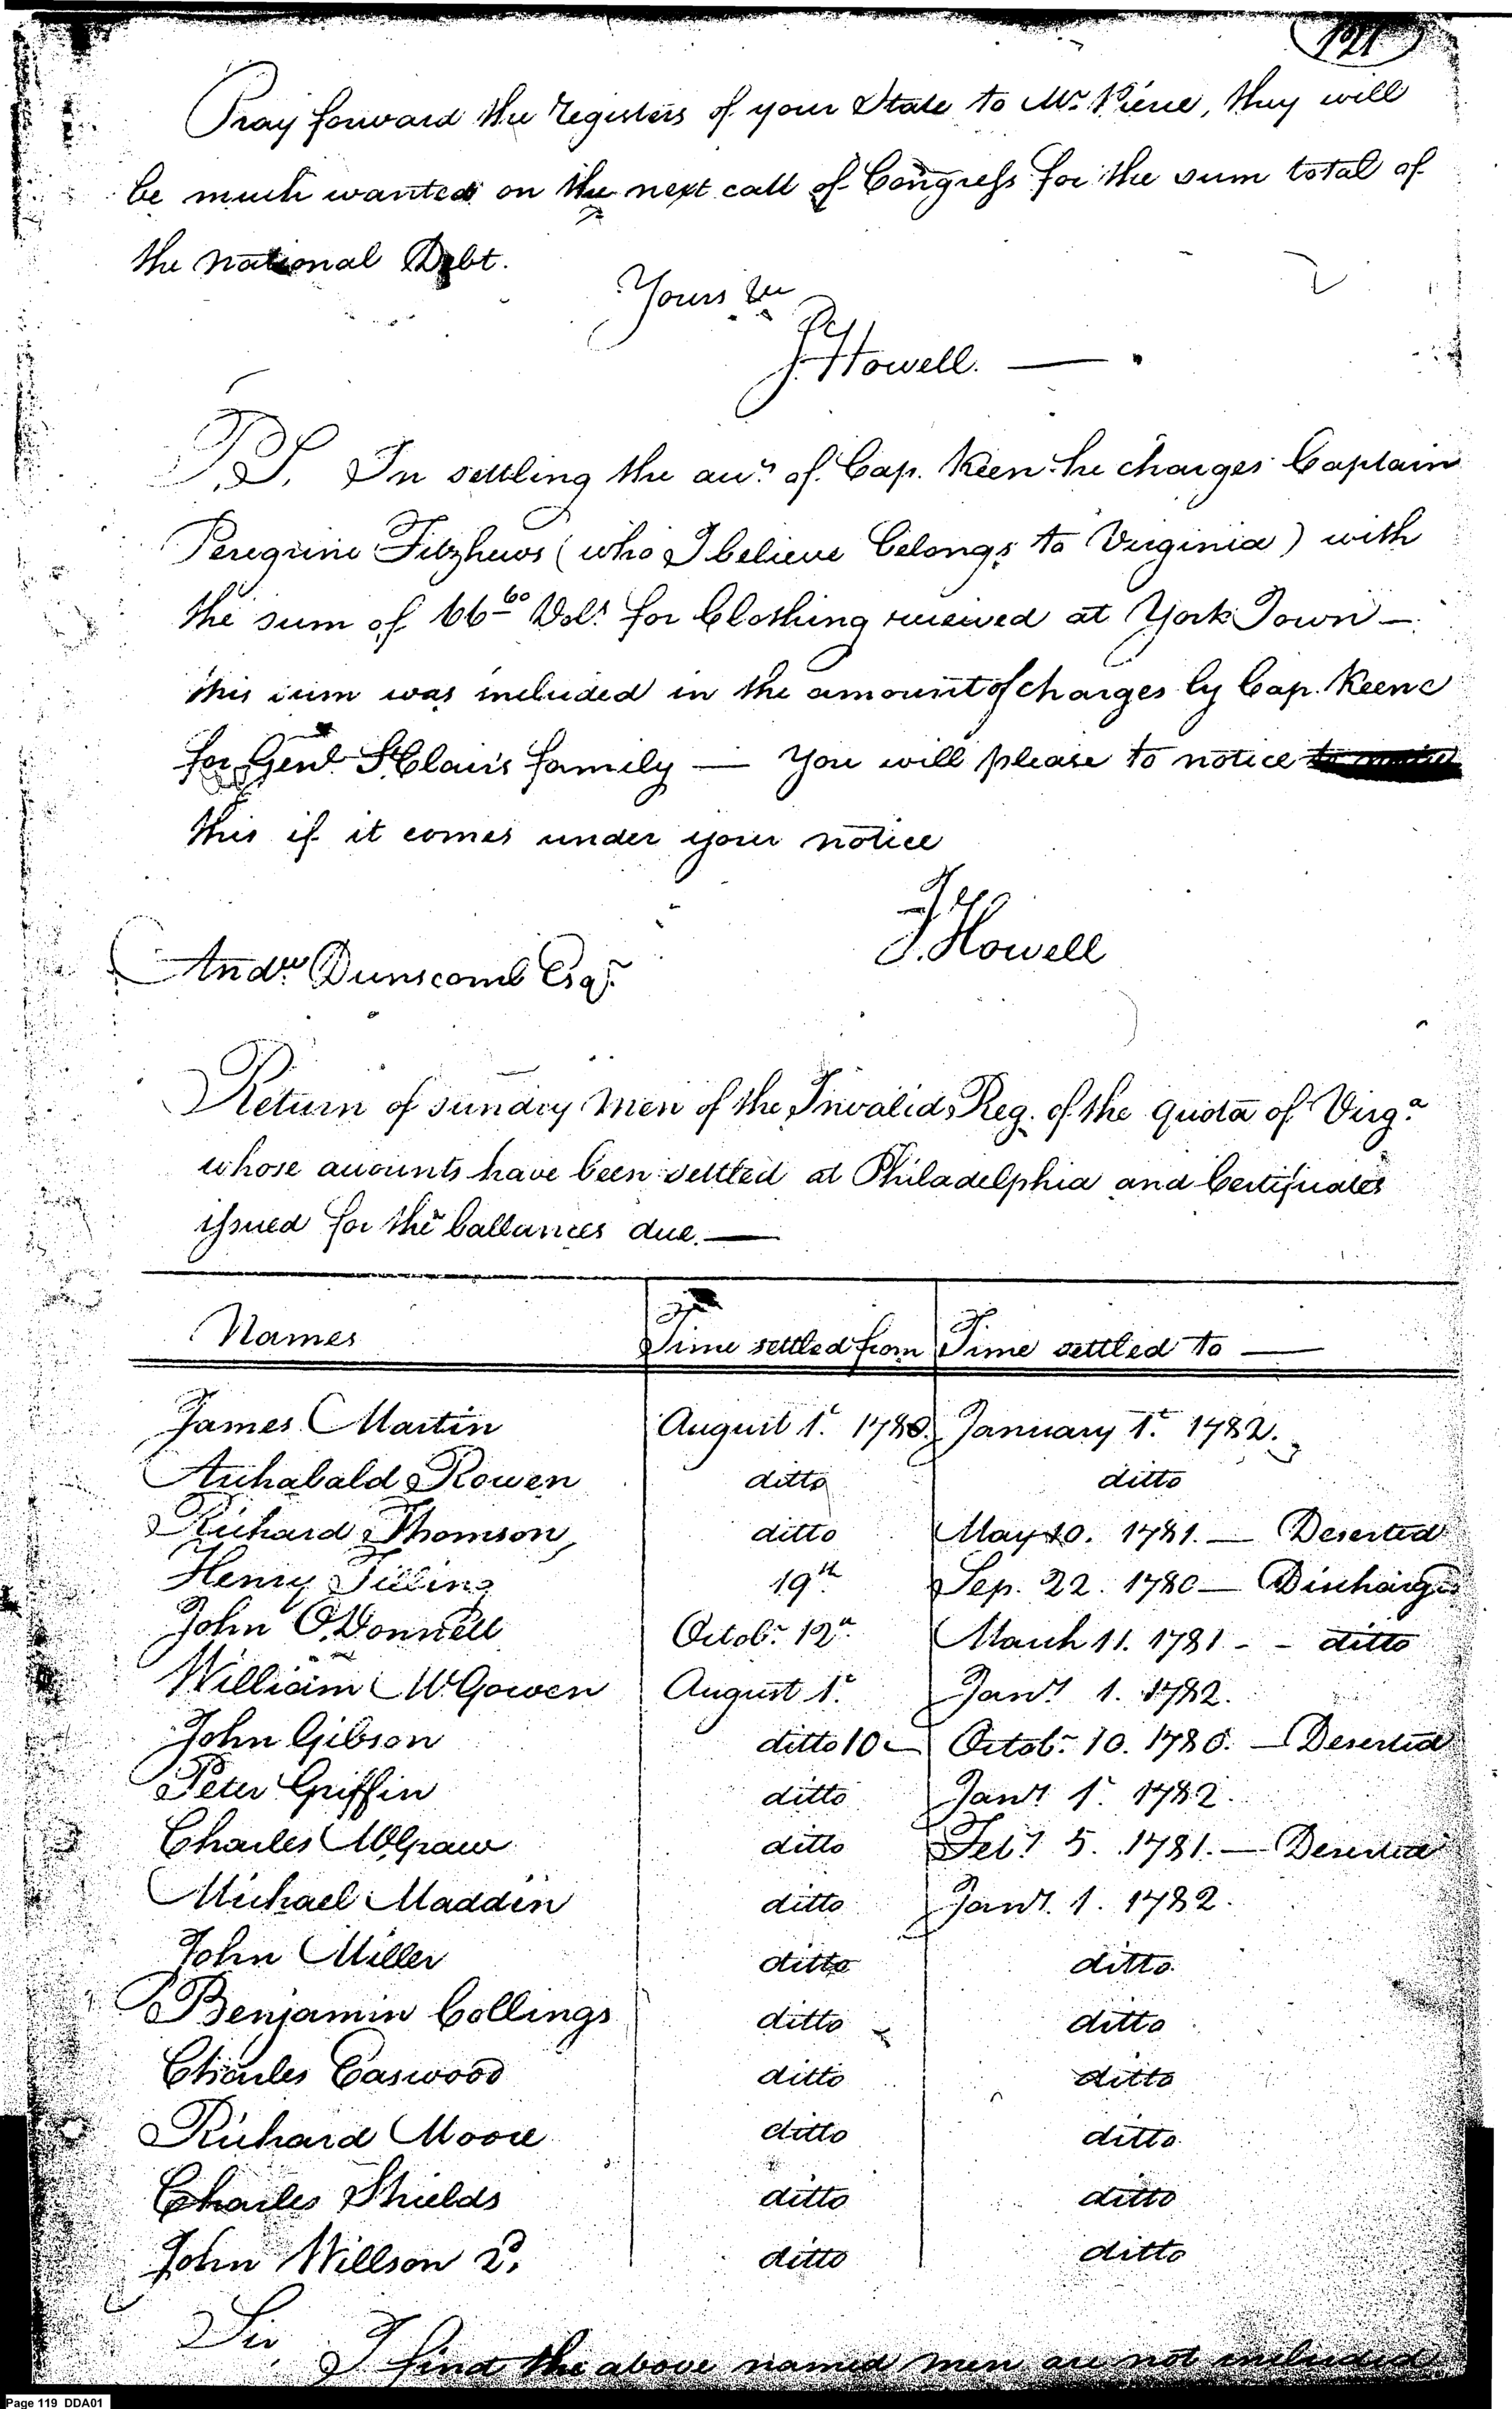 121
Pray forward the Registers of your State to Mr. Pierce, they will
be much wanted on the next call of Congress for the sum total of
the national Debt.
Yours &c
J Howell. —
P.S. In settling the acc.ts of Cap. Keen he charges Captain
Peregrine Fitzhews (who I believe belongs to Virginia) with
the sum of 66 60 Dols. for Clothing received at York Town —
this sum was included in the amount of charges by Cap. Keene
for Genl. St Clair's family — You will please to notice
this if it comes under your notice
J. Howell
Andw. Dunscomb Esqr.
Return of sundry Men of the Invalid Reg. of the quota of Virga.
whose accounts have been settled at Philadelphia and Certificates
issued for the ballances due. —
Names Time settled from Time settled to —
James Martin August 1t. 1780. January 1t. 1782.
Archabald Rowen ditto ditto
Richard Thomson ditto May 10. 1781. — Deserted
Henry Tilling 19th Sep. 22. 1780 — Discharged
John O.Donnell Octobr. 12th March 11. 1781 - - ditto
William McGowen August 1t. Jany. 1. 1782.
John Gibson ditto 10 — Octobr. 10. 1780. — Deserted
Peter Griffin ditto Jany. 1t. 1782.
Charles McGraw ditto Feby. 5. 1781. — Deserted
Michael Madden ditto Jany. 1. 1782.
John Miller ditto ditto.
Benjamin Collings ditto ditto
Charles Easwood ditto ditto
Richard Moore ditto ditto.
Charles Shields ditto ditto
John Willson 2d. ditto ditto
Sir
I find the above named men are not included
Page 119 DDA01